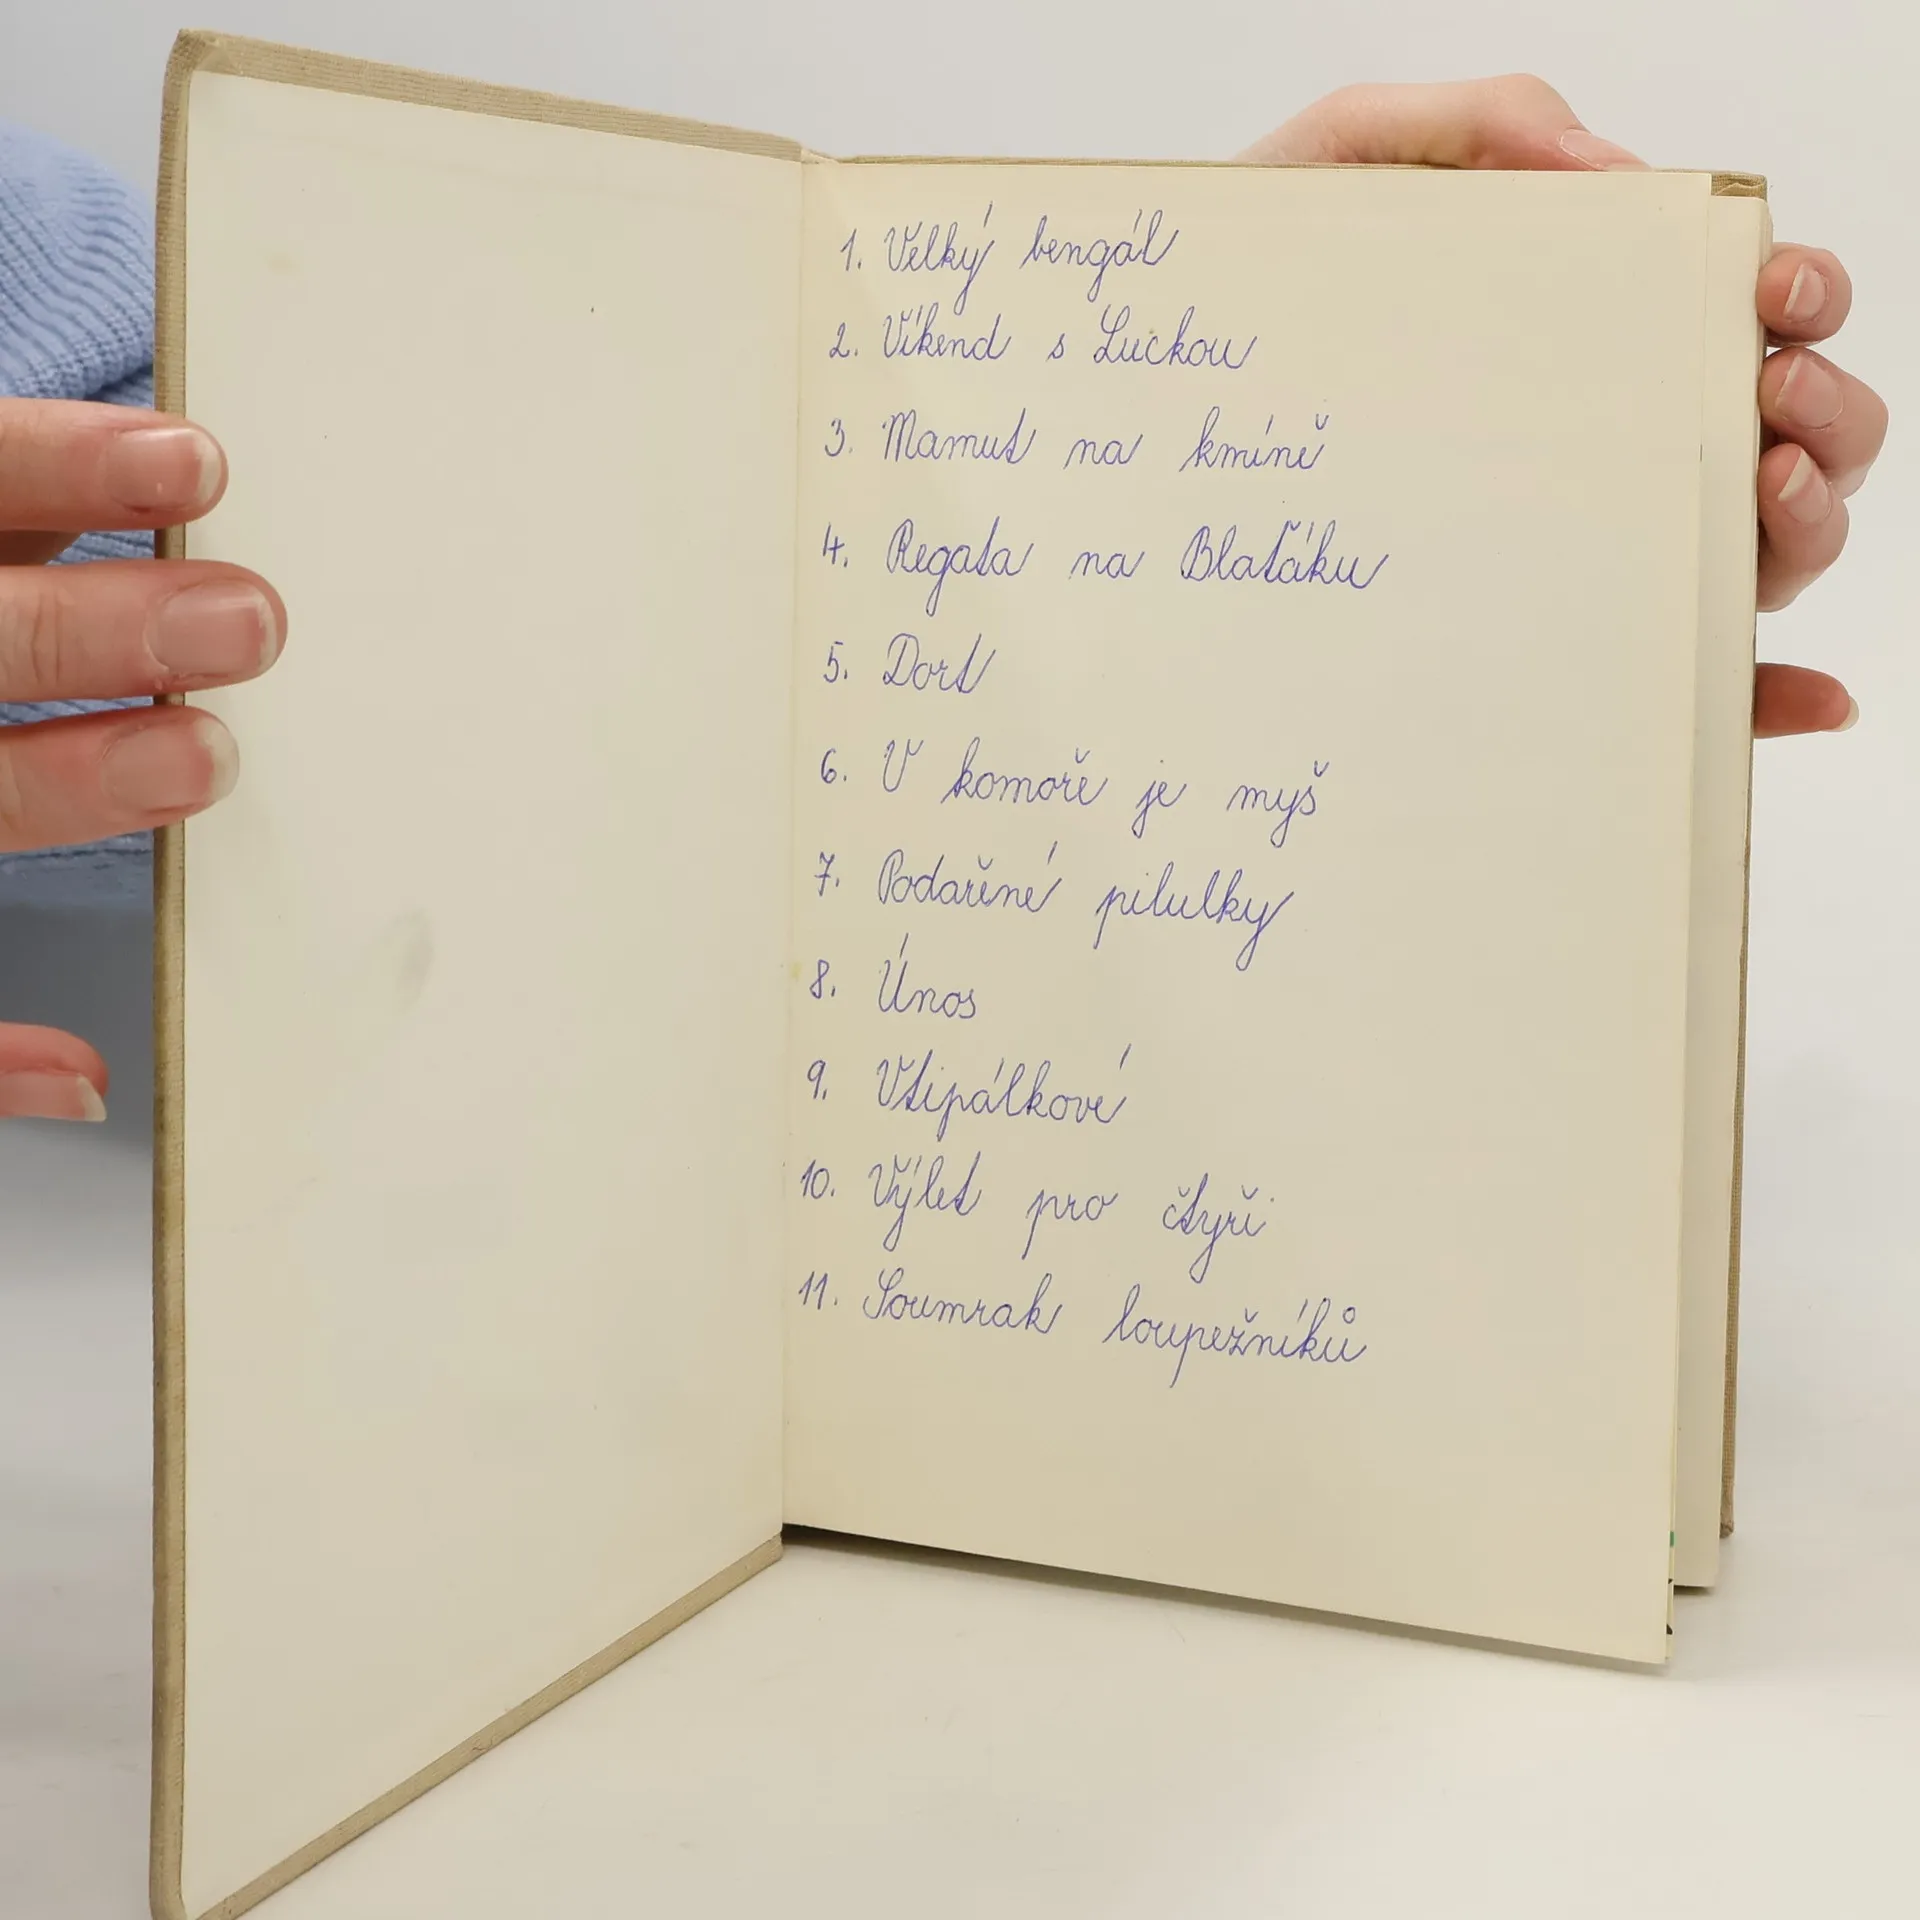 1. Velký bengál
2. Víkend s Luckou
3. Mamut na kmíně
4. Regata na Blaťáku
5. Dort
6. V komoře je myš
7. Podařené pilulky
8. Únos
9. Vtipálkové
10. Výlet pro čtyři
11. Soumrak loupežníků